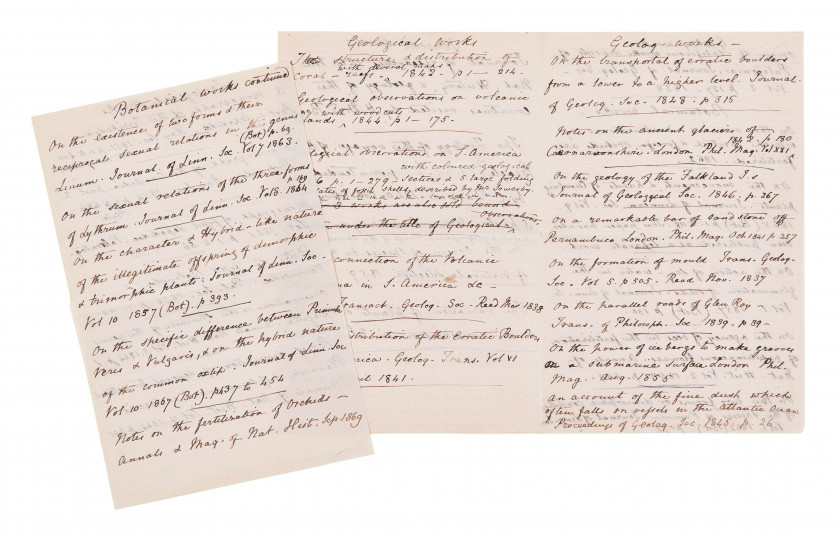 Botanical works continued
On the existence of two forms & their
reciprocal sexual relations in the genus
(Bot) p 69-
Linum. Journal of Linn. Soc. Vol 7 1863.
On the sexual relations of the three forms
p 169
of Lythrum. Journal of Linn. Soc Vol 8. 1864
On the character & Hybrid-like nature
of the illegitimate offspring of dimorphic
& trimorphic plants: Journal of Linn. Soc.
Vol 10 1867 (Bot). p 393.
On the specific difference between Primula
Veris & Vulgaris, & on the hybrid nature
of the common oxlip. Journal of Linn. Soc
Vol. 10 1867 (Bot). p 437 to 454
Notes on the fertilization of Orchids —
Annals & Mag. of Nat. Hist. Sep 1869
Geological Works
The structure & distribution of
with several maps
coral-reefs. 1842. p 1 — 214.
Geological observations on volcanic
with woodcuts
lands 1844 p 1 — 175.
logical observations on S. America
with coloured geological
p. 1-279 sections & 5 large folding
plates of fossil shells, described by Mr Sowerby.
3 works are also bound
observations
under the title of Geological
connection of the Volcanic
na in S. America &c —
Transact. Geolog. Soc. Read Mar 1838
distribution of the Erratic Boulders
ericas. Geolog. Trans. Vol VI
il 1841.
Geolog works —
On the transportal of erratic boulders
from a lower to a higher level. Journal
of Geolog. Soc. 1848. p 315
Notes on the ancient glaciers of
1842. p 180
Caernarvonshire. London Phil. Mag. Vol XXI
On the geology of the Falkland Is
Journal of Geological Soc. 1846. p 267
On a remarkable bar of sandstone off
Pernambuco. London. Phil. Mag. Oct 1841 p 257
On the formation of mould Trans. Geolog-
Soc. Vol 5. p 505. Read Nov. 1837
On the parallel roads of Glen Roy —
Trans. of Philosoph. Soc 1839. p 39 —
On the power of icebergs to make grooves
on a submarine surface London Phil.
Mag. Aug. 1855
An account of the fine dust which
often falls on vessels in the Atlantic Ocean
Proceedings of Geolog. Soc. 1845. p 26